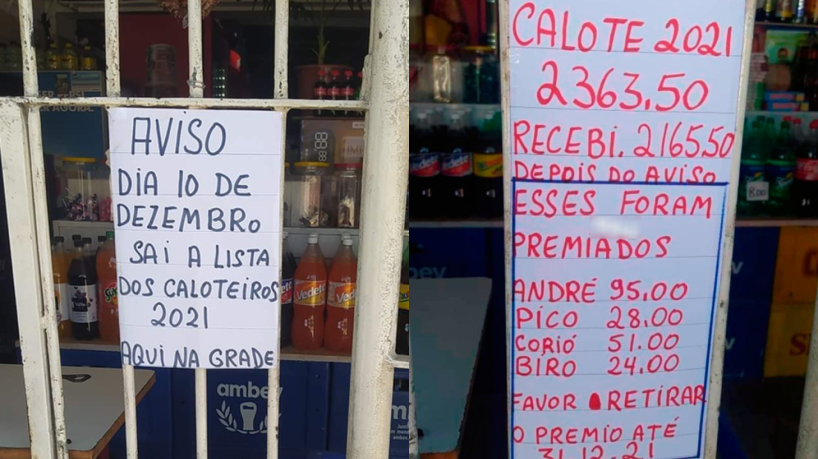 AVISO
DIA 10 DE
DEZEMBRO
SAI A LISTA
DOS CALOTEIROS
2021
AQUI NA GRADE
ambev
Vedete
CALOTE 2021
2363,50
RECEBI. 2165,50
DEPOIS DO AVISO
ESSES FORAM
PREMIADOS
ANDRÉ 95.00
PICO 28.00
CORIÓ 51.00
BIRO 24.00
FAVOR RETIRAR
O PREMIO ATÉ
31.12.21
ambev